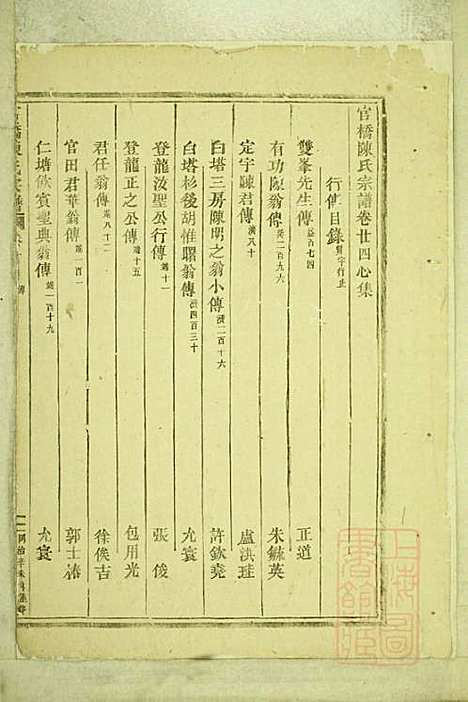 官橋陳氏宗譜卷廿四心集
行傳目錄
雙峯先生傳 益百七四 正道
有功陳翁傳 滿二百九六 朱鏽英
定宇陳君傳 滿八十 盧洪珪
白塔三房陳明之翁小傳 滿二百十六 許欽堯
白塔杉後胡惟賜翁傳 滿四百三十 允寰
登龍汝聖公行傳 滿十一 張俊
登龍正之公傳 滿十五 包用光
君任翁傳 滿八十二 徐俟吉
官田君華翁傳 滿一百一 郭士
仁塘飲賓聖典翁傳 滿一百十九 允寰
同治辛未
上海圖書館藏